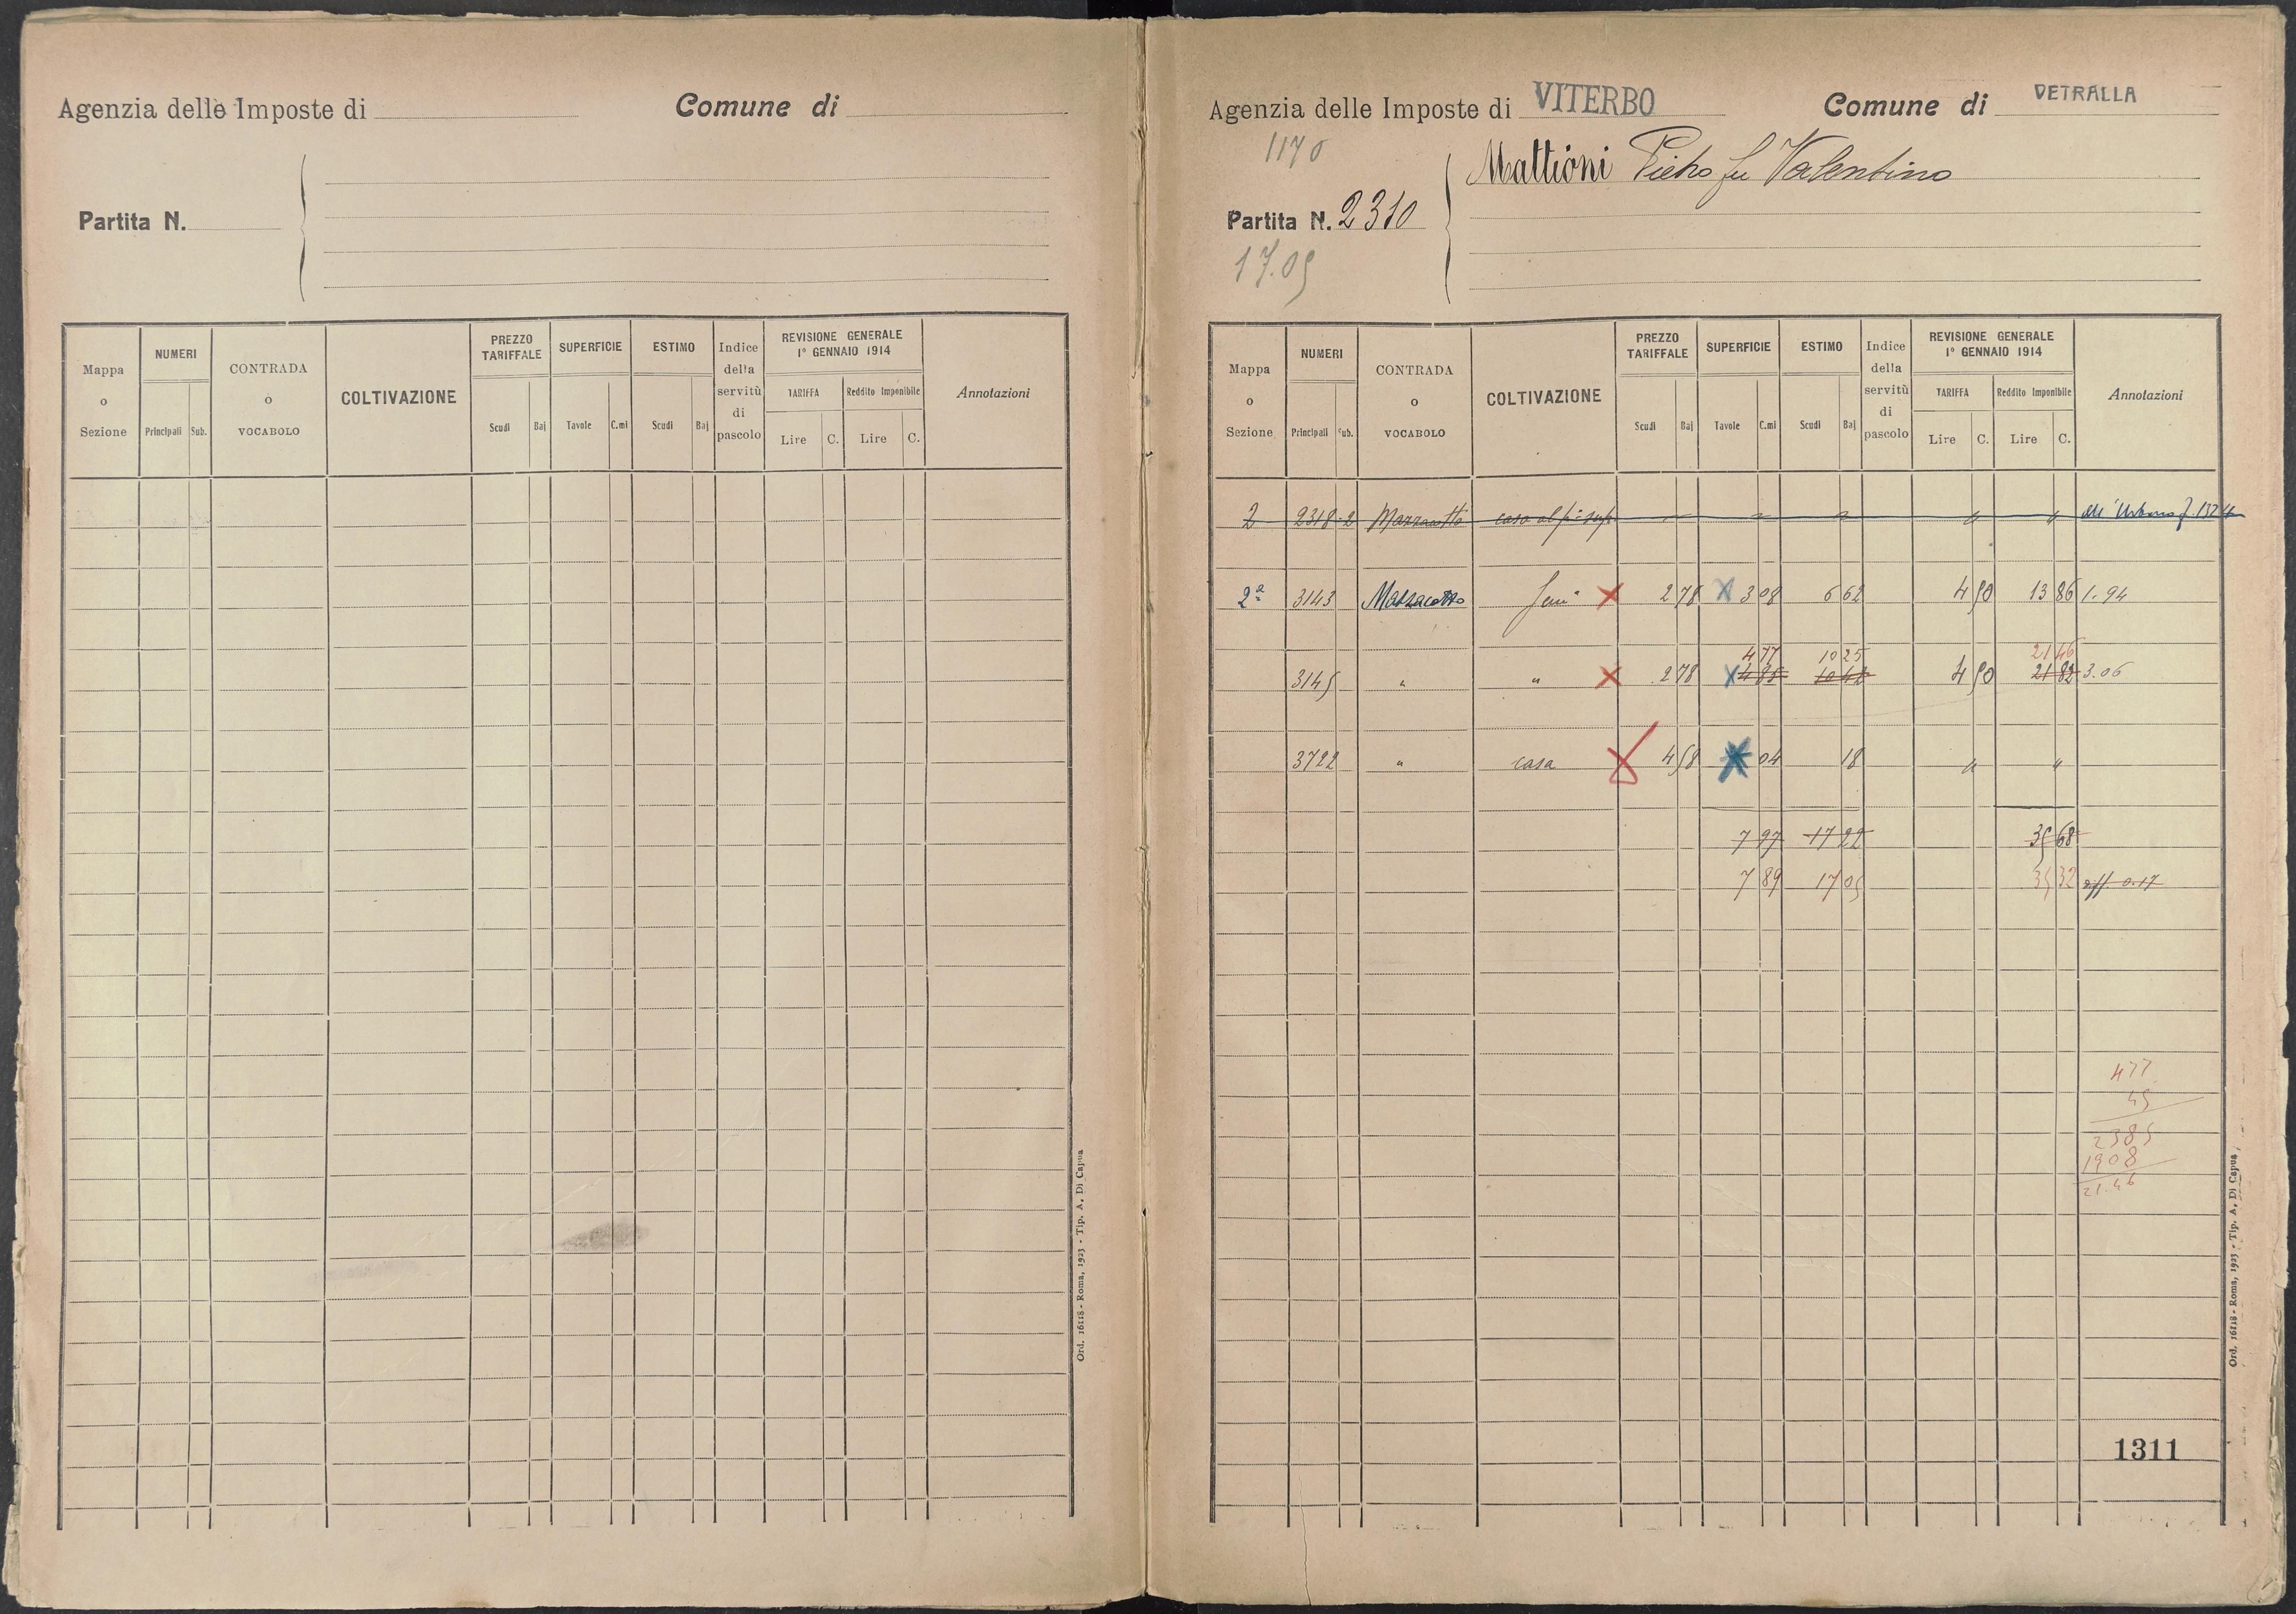 Agenzia delle Imposte di
Comune di
Partita N.
Mappa o Sezione
NUMERI
Principali
Sub.
CONTRADA o VOCABOLO
COLTIVAZIONE
PREZZO TARIFFALE
Scudi
Baj
SUPERFICIE
Tavole
C.mi
ESTIMO
Scudi
Baj
Indice della servitù di pascolo
REVISIONE GENERALE
1° GENNAIO 1914
TARIFFA
Lire C.
Reddito Imponibile
Lire C.
Annotazioni
Ord. 16118 - Roma, 1923 - Tip. A. Di Capua
Agenzia delle Imposte di VITERBO
Comune di VETRALLA
1170
Mattioni Pietro fu Valentino
Partita N. 2310
17.05
Mappa o Sezione
NUMERI
Principali
Sub.
CONTRADA o VOCABOLO
COLTIVAZIONE
PREZZO TARIFFALE
Scudi
Baj
SUPERFICIE
Tavole
C.mi
ESTIMO
Scudi
Baj
Indice della servitù di pascolo
REVISIONE GENERALE
1° GENNAIO 1914
TARIFFA
Lire C.
Reddito Imponibile
Lire C.
Annotazioni
2 2318 2 Mazzacotto casa al p° sup. " " " " " all'Urbano f. 1324
2ª 3143 Mazzacotto Sem° 2 78 3 08 6 62 4 50 13 86 1.94
4 77 10 25 21 46
3145 " " 2 78 4 85 10 42 4 50 21 82 3.06
3722 " casa 4 58 04 18 " "
7 97 17 22 35 68
7 89 17 05 35 32 diff. 0.17
477
45
2385
1908
21.46
1311
Ord. 16118 - Roma, 1923 - Tip. A. Di Capua